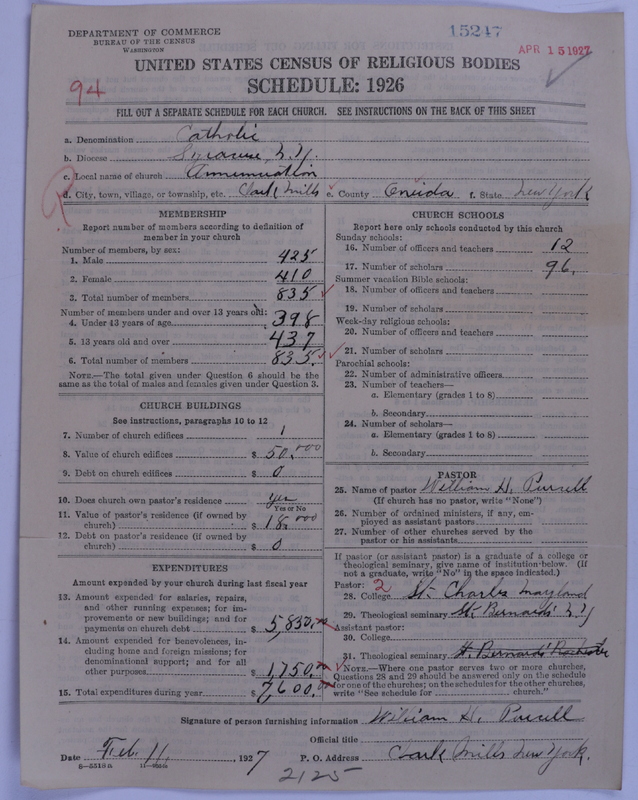 DEPARTMENT OF COMMERCE
BUREAU OF THE CENSUS
WASHINGTON
15247
APR 15 1927
94
UNITED STATES CENSUS OF RELIGIOUS BODIES
SCHEDULE: 1926
FILL OUT A SEPARATE SCHEDULE FOR EACH CHURCH. SEE INSTRUCTIONS ON THE BACK OF THIS SHEET
a. Denomination Catholic
b. Diocese Syracuse, N.Y.
c. Local name of church Annunciation
d. City, town, village, or township, etc. Clark Mills e. County Oneida f. State New York
MEMBERSHIP
Report number of members according to definition of
member in your church
Number of members, by sex:
1. Male 425
2. Female 410
3. Total number of members 835
Number of members under and over 13 years old:
4. Under 13 years of age 398
5. 13 years old and over 437
6. Total number of members 835
NOTE.—The total given under Question 6 should be the
same as the total of males and females given under Question 3.
CHURCH BUILDINGS
See instructions, paragraphs 10 to 12
7. Number of church edifices 1
8. Value of church edifices $ 50,000
9. Debt on church edifices $ 0
10. Does church own pastor's residence yes
Yes or No
11. Value of pastor's residence (if owned by
church) $ 18,000
12. Debt on pastor's residence (if owned by
church) $ 0
EXPENDITURES
Amount expended by your church during last fiscal year
13. Amount expended for salaries, repairs,
and other running expenses; for im-
provements or new buildings; and for
payments on church debt $ 5,830.00
14. Amount expended for benevolences, in-
cluding home and foreign missions; for
denominational support; and for all
other purposes $ 1,750.00
15. Total expenditures during year $ 7,600.00
CHURCH SCHOOLS
Report here only schools conducted by this church
Sunday schools:
16. Number of officers and teachers 12
17. Number of scholars 96
Summer vacation Bible schools:
18. Number of officers and teachers
19. Number of scholars
Week-day religious schools:
20. Number of officers and teachers
21. Number of scholars
Parochial schools:
22. Number of administrative officers
23. Number of teachers—
a. Elementary (grades 1 to 8)
b. Secondary
24. Number of scholars—
a. Elementary (grades 1 to 8)
b. Secondary
PASTOR
25. Name of pastor William H. Purcell
(If church has no pastor, write "None")
26. Number of ordained ministers, if any, em-
ployed as assistant pastors
27. Number of other churches served by the
pastor or his assistants
If pastor (or assistant pastor) is a graduate of a college or
theological seminary, give name of institution below. (If
not a graduate, write "No" in the space indicated.)
Pastor: 2
28. College St. Charles Maryland
29. Theological seminary St. Bernards' N.Y
Assistant pastor:
30. College
31. Theological seminary St. Bernards' Rochester
NOTE.—Where one pastor serves two or more churches,
Questions 28 and 29 should be answered only on the schedule
for one of the churches; on the schedules for the other churches,
write "See schedule for church."
Signature of person furnishing information William H. Purcell
Official title
Date Feb. 11, 1927 P. O. Address Clark Mills New York.
8-5518a
2125